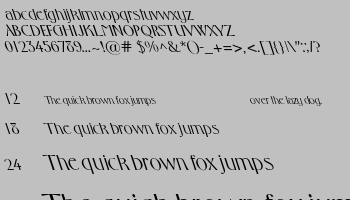 abcdefghijklmnopqrstuvwxyz
ABCDEFGHIJKLMNOPQRSTUVWXYZ
0123456789...~!@# $%^&*()-_+=>,<.[]{}/|\":;!?
12 The quick brown fox jumps over the lazy dog.
18 The quick brown fox jumps
24 The quick brown fox jumps
The quick brown fox jum